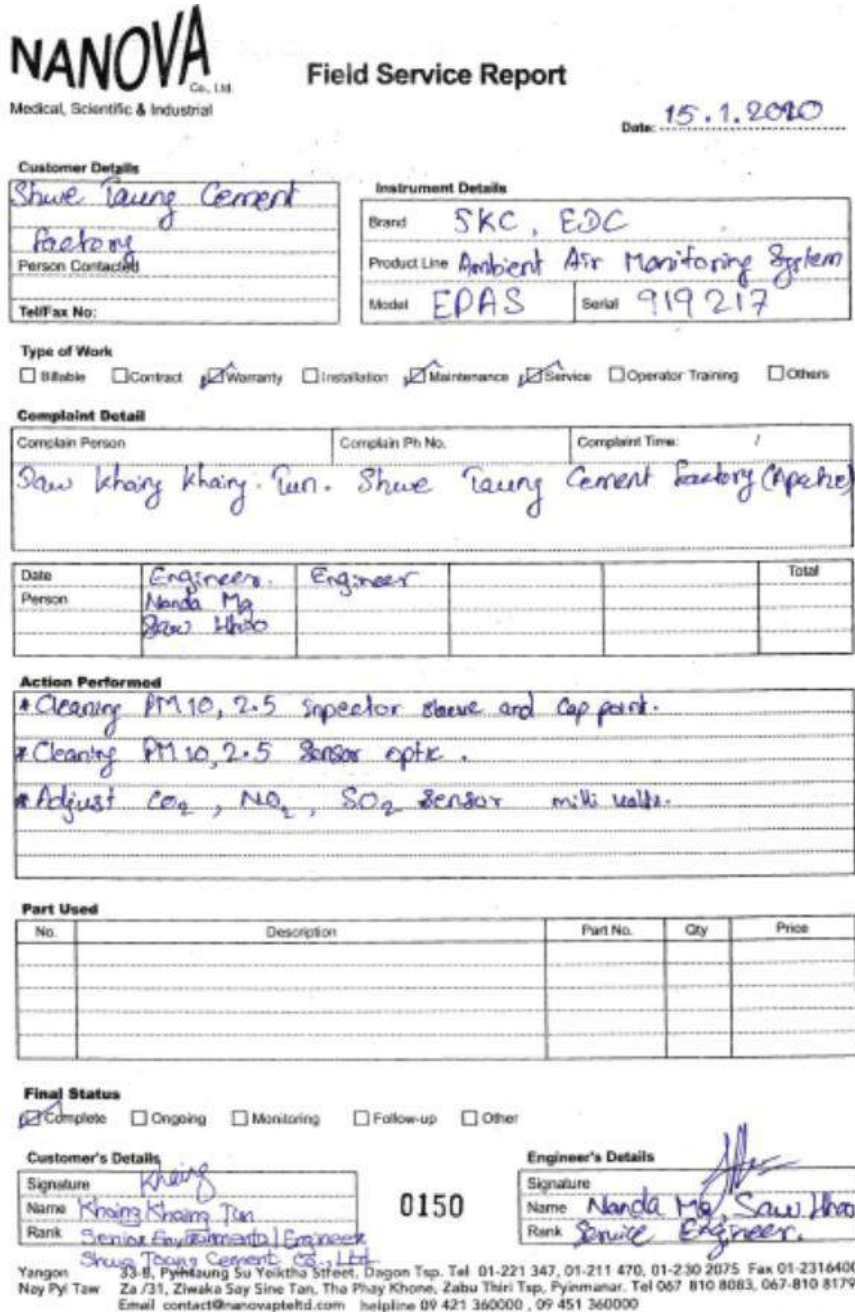 NANOVA
Co., Ltd.
Medical, Scientific & Industrial
Field Service Report
Date: 15.1.2020
Customer Details
Shwe Taung Cement
factory
Person Contacted
Tell/Fax No:
Instrument Details
Brand SKC, EDC
Product Line Ambient Air Monitoring System
Model EPAS Serial 919217
Type of Work
Billable Contract Warranty Installation Maintenance Service Operator Training Others
Complaint Detail
Complain Person Complain Ph No. Complaint Time: /
Daw Khaing Khaing Tun. Shwe Taung Cement factory (Apache)
Date Engineer. Engineer Total
Person Nanda Mg
Saw Htoo
Action Performed
* Cleaning PM 10, 2.5 sleeve and Cap point.
* Cleaning PM 10, 2.5 Sensor optic.
* Adjust CO2, NO2, SO2 Sensor milli volts.
Part Used
No. Description Part No. Qty Price
Final Status
Complete Ongoing Monitoring Follow-up Other
Customer's Details
Signature Khaing
Name Khaing Khaing Tun
Rank Senior Environmental Engineer
Shwe Taung Cement Co., Ltd
0150
Engineer's Details
Signature
Name Nanda Mg, Saw Htoo
Rank Service Engineer.
Yangon 33-B, Pyihtaung Su Yeiktha Street, Dagon Tsp. Tel 01-221 347, 01-211 470, 01-230 2075 Fax 01-2316400
Nay Pyi Taw Za /31, Ziwaka Say Sine Tan, Tha Phay Khone, Zabu Thiri Tsp, Pyinmanar. Tel 067 810 8083, 067-810 8179
Email contact@nanovapteltd.com helpline 09 421 360000 , 09 451 360000